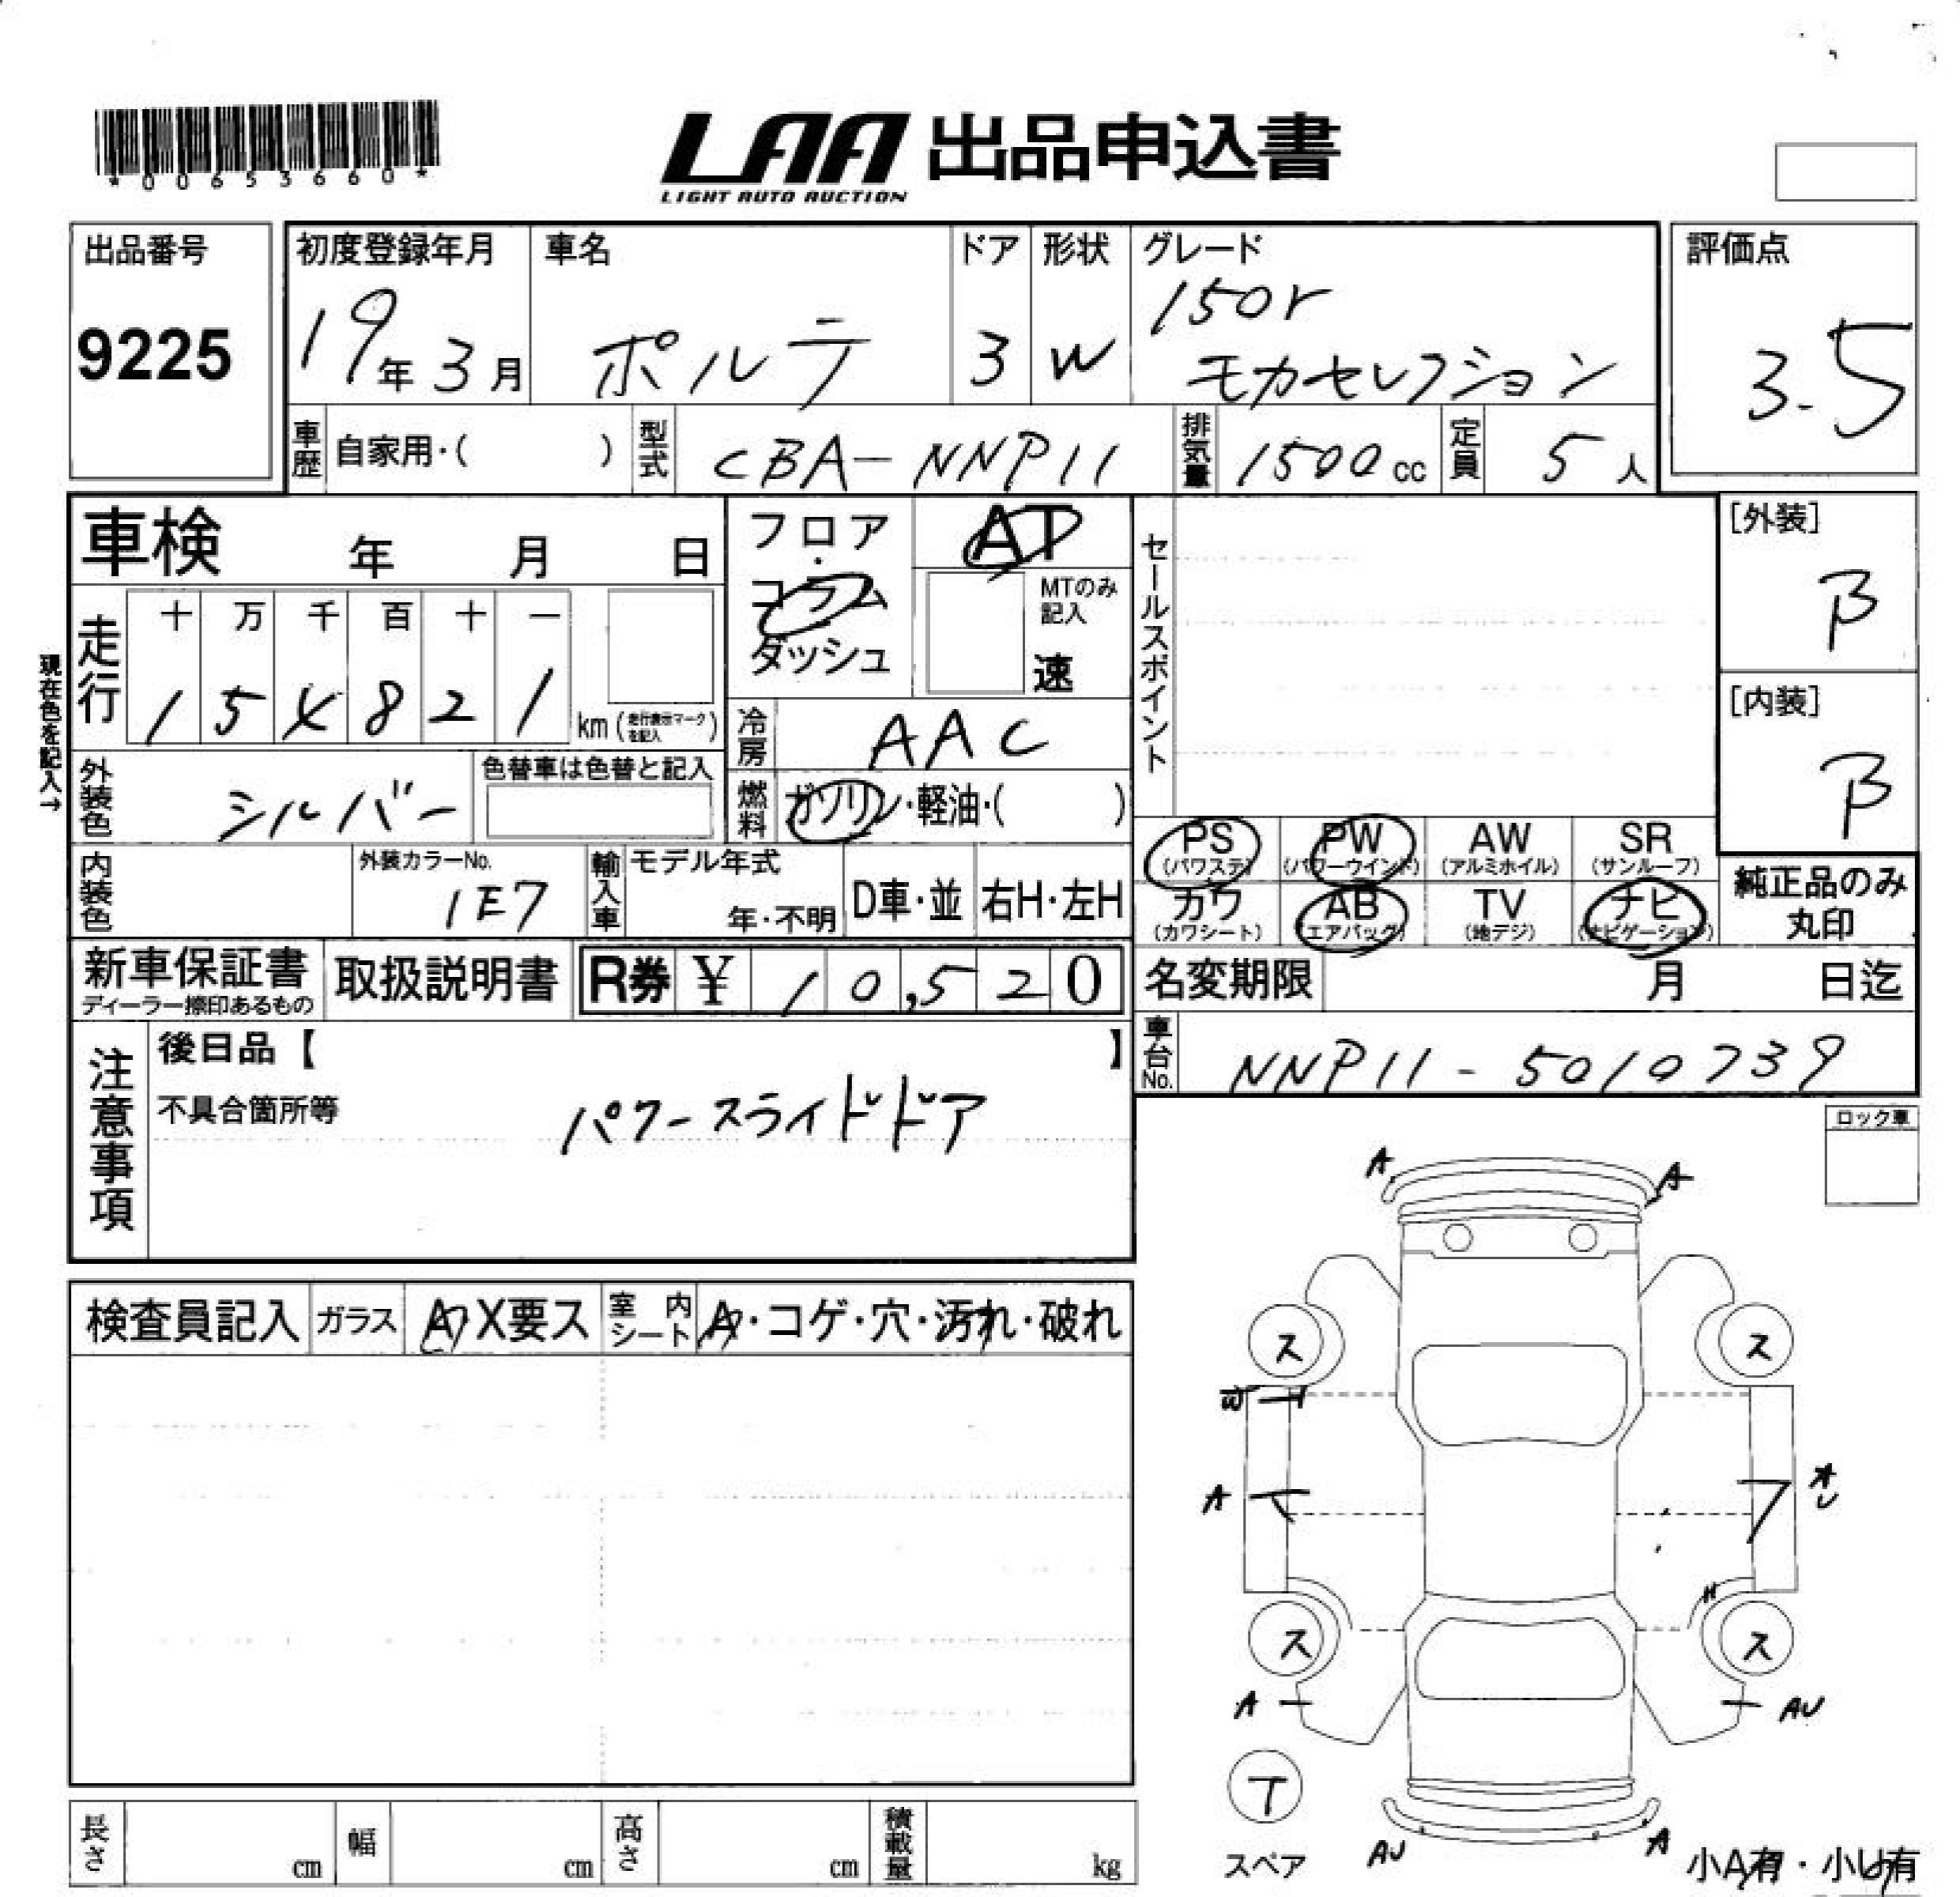 *00653660*
LAA 出品申込書
LIGHT AUTO AUCTION
出品番号 初度登録年月 車名 ドア 形状 グレード 評価点
9225 19年3月 ポルテ 3 W 150r モカセレクション 3.5
車歴 自家用・( ) 型式 CBA-NNP11 排気量 1500cc 定員 5人
車検 年 月 日 フロア・コラム ダッシュ AT セールスポイント [外装] B
MTのみ記入 速
現在色を記入→
走行 十 万 千 百 十 一
1 5 4 8 2 1 km (走行表示マークを記入)
冷房 AAC [内装] B
外装色 シルバー 色替車は色替と記入 燃料 ガソリン・軽油・( )
PS (パワステ) PW (パワーウインド) AW (アルミホイル) SR (サンルーフ)
内装色 外装カラーNo. 1E7 輸入車 モデル年式 年・不明 D車・並 右H・左H
カワ (カワシート) AB (エアバッグ) TV (地デジ) ナビ (ナビゲーション) 純正品のみ丸印
新車保証書 ディーラー捺印あるもの 取扱説明書 R券 ¥ 10,520 名変期限 月 日迄
車台No. NNP11-5010739
注意事項 後日品【 】
不具合箇所等 パワースライドドア
ロック車
A A
検査員記入 ガラス A X要ス 室内シート A・コゲ・穴・汚れ・破れ
ス ス
W
A オレ
ス ス
A AU
T
スペア AU A 小A有・小U有
長さ cm 幅 cm 高さ cm 積載量 kg